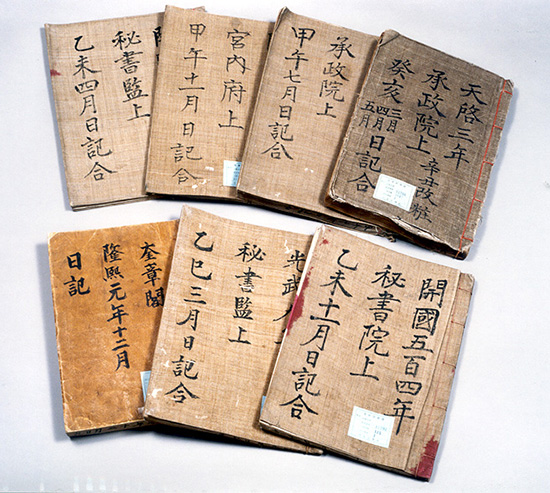 天啓三年
承政院上 辛丑改
癸亥 三月 四月 五月 日記合
承政院上
甲午七月日記合
宮內府上
甲午十一月日記合
秘書監上
乙未四月日記合
開國五百四年
秘書院上
乙未十一月日記合
光武
秘書監上
乙巳三月日記合
奎章閣
隆熙元年十二月
日記